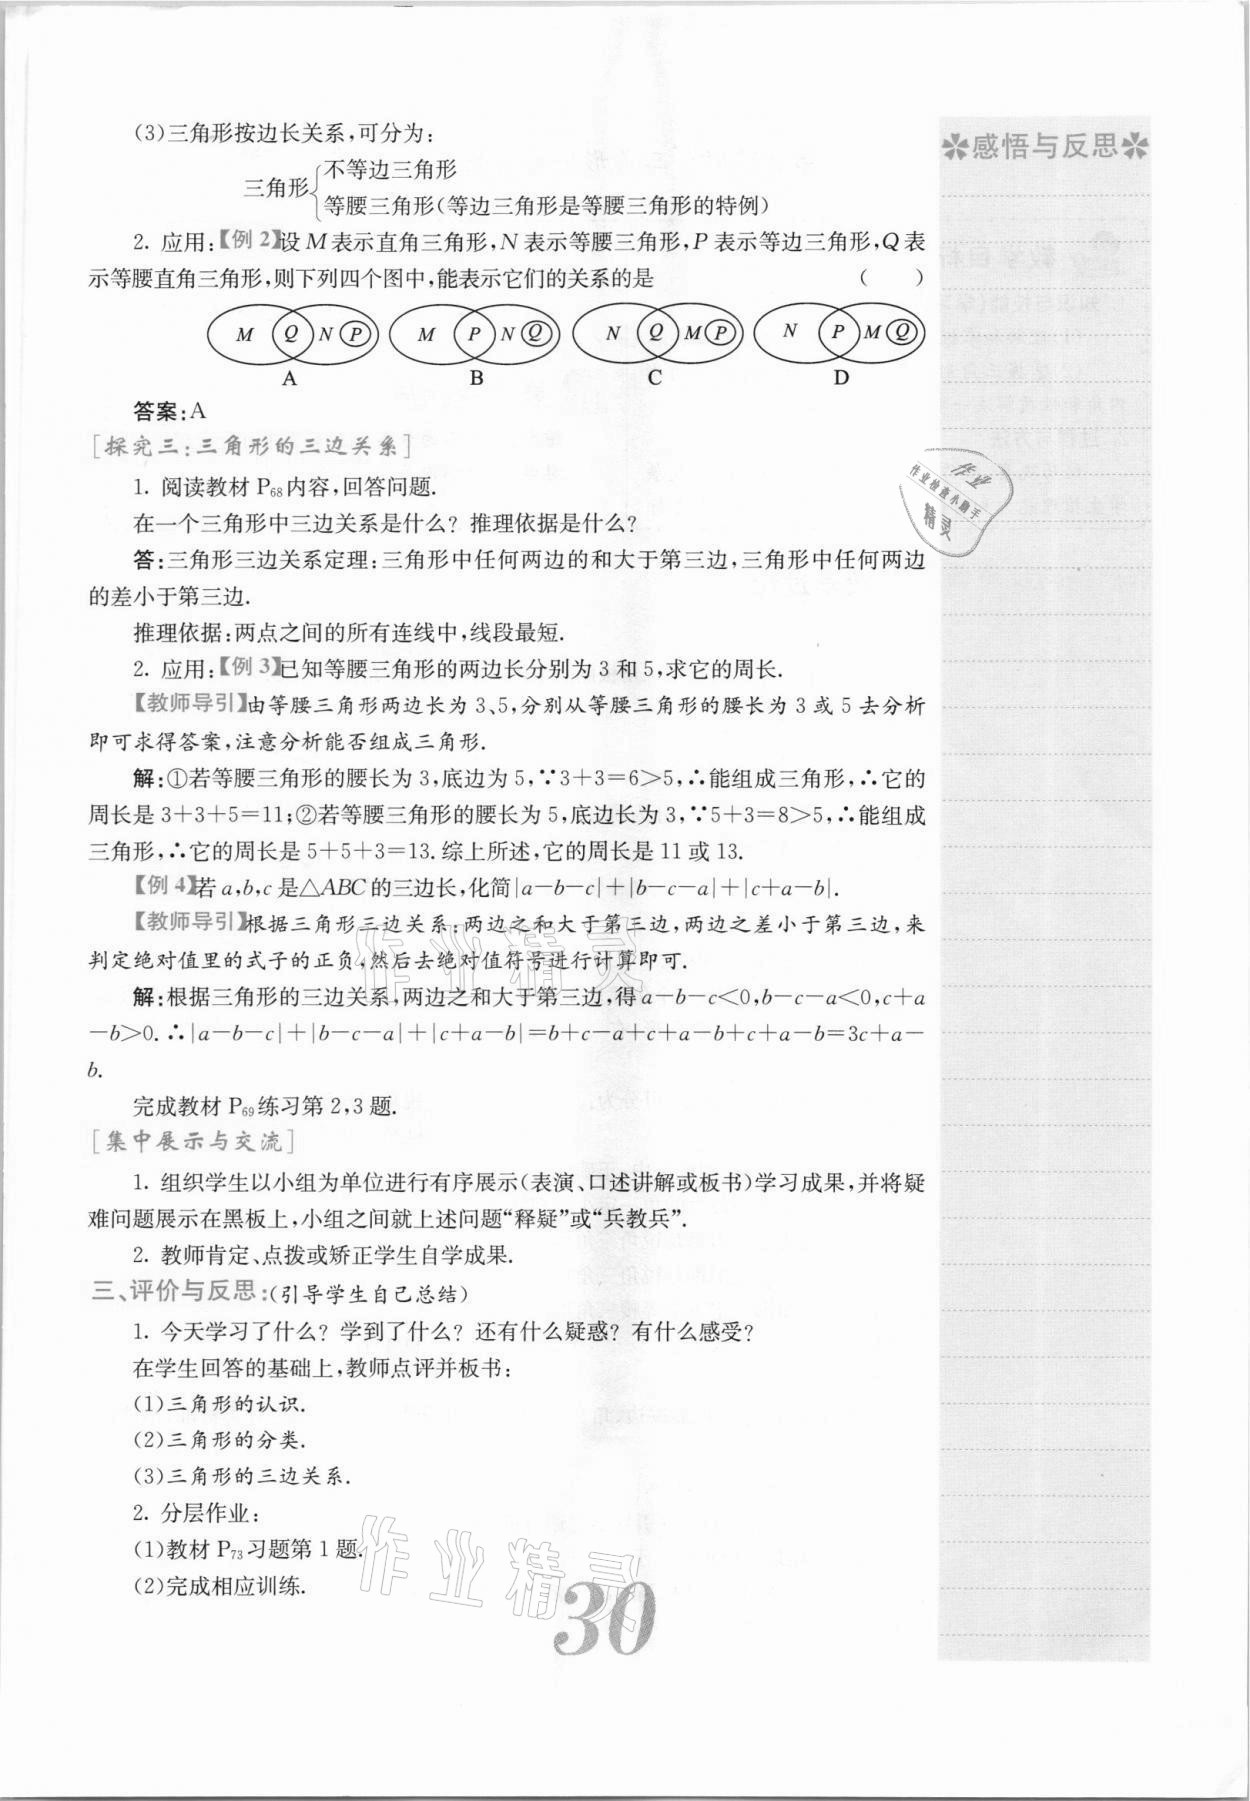 (3)三角形按边长关系,可分为:
三角形{不等边三角形
等腰三角形(等边三角形是等腰三角形的特例)
2. 应用:【例 2】设 M 表示直角三角形,N 表示等腰三角形,P 表示等边三角形,Q 表
示等腰直角三角形,则下列四个图中,能表示它们的关系的是 ( )
M Q N P M P N Q N Q M P N P M Q
A B C D
答案:A
[探究三:三角形的三边关系]
1. 阅读教材 P68内容,回答问题.
在一个三角形中三边关系是什么? 推理依据是什么?
答:三角形三边关系定理:三角形中任何两边的和大于第三边,三角形中任何两边
的差小于第三边.
推理依据:两点之间的所有连线中,线段最短.
2. 应用:【例 3】已知等腰三角形的两边长分别为 3 和 5,求它的周长.
【教师导引】由等腰三角形两边长为 3、5,分别从等腰三角形的腰长为 3 或 5 去分析
即可求得答案,注意分析能否组成三角形.
解:①若等腰三角形的腰长为 3,底边为 5,∵3+3=6>5,∴能组成三角形,∴它的
周长是 3+3+5=11;②若等腰三角形的腰长为 5,底边长为 3,∵5+3=8>5,∴能组成
三角形,∴它的周长是 5+5+3=13. 综上所述,它的周长是 11 或 13.
【例 4】若 a,b,c 是△ABC 的三边长,化简|a-b-c|+|b-c-a|+|c+a-b|.
【教师导引】根据三角形三边关系:两边之和大于第三边,两边之差小于第三边,来
判定绝对值里的式子的正负,然后去绝对值符号进行计算即可.
解:根据三角形的三边关系,两边之和大于第三边,得 a-b-c<0,b-c-a<0,c+a
-b>0. ∴|a-b-c|+|b-c-a|+|c+a-b|=b+c-a+c+a-b+c+a-b=3c+a-
b.
完成教材 P69练习第 2,3 题.
[集中展示与交流]
1. 组织学生以小组为单位进行有序展示(表演、口述讲解或板书)学习成果,并将疑
难问题展示在黑板上,小组之间就上述问题“释疑”或“兵教兵”.
2. 教师肯定、点拨或矫正学生自学成果.
三、评价与反思:(引导学生自己总结)
1. 今天学习了什么? 学到了什么? 还有什么疑惑? 有什么感受?
在学生回答的基础上,教师点评并板书:
(1)三角形的认识.
(2)三角形的分类.
(3)三角形的三边关系.
2. 分层作业:
(1)教材 P73习题第 1 题.
(2)完成相应训练.
30
感悟与反思
作业
作业检查小助手
精灵
作业精灵
作业精灵